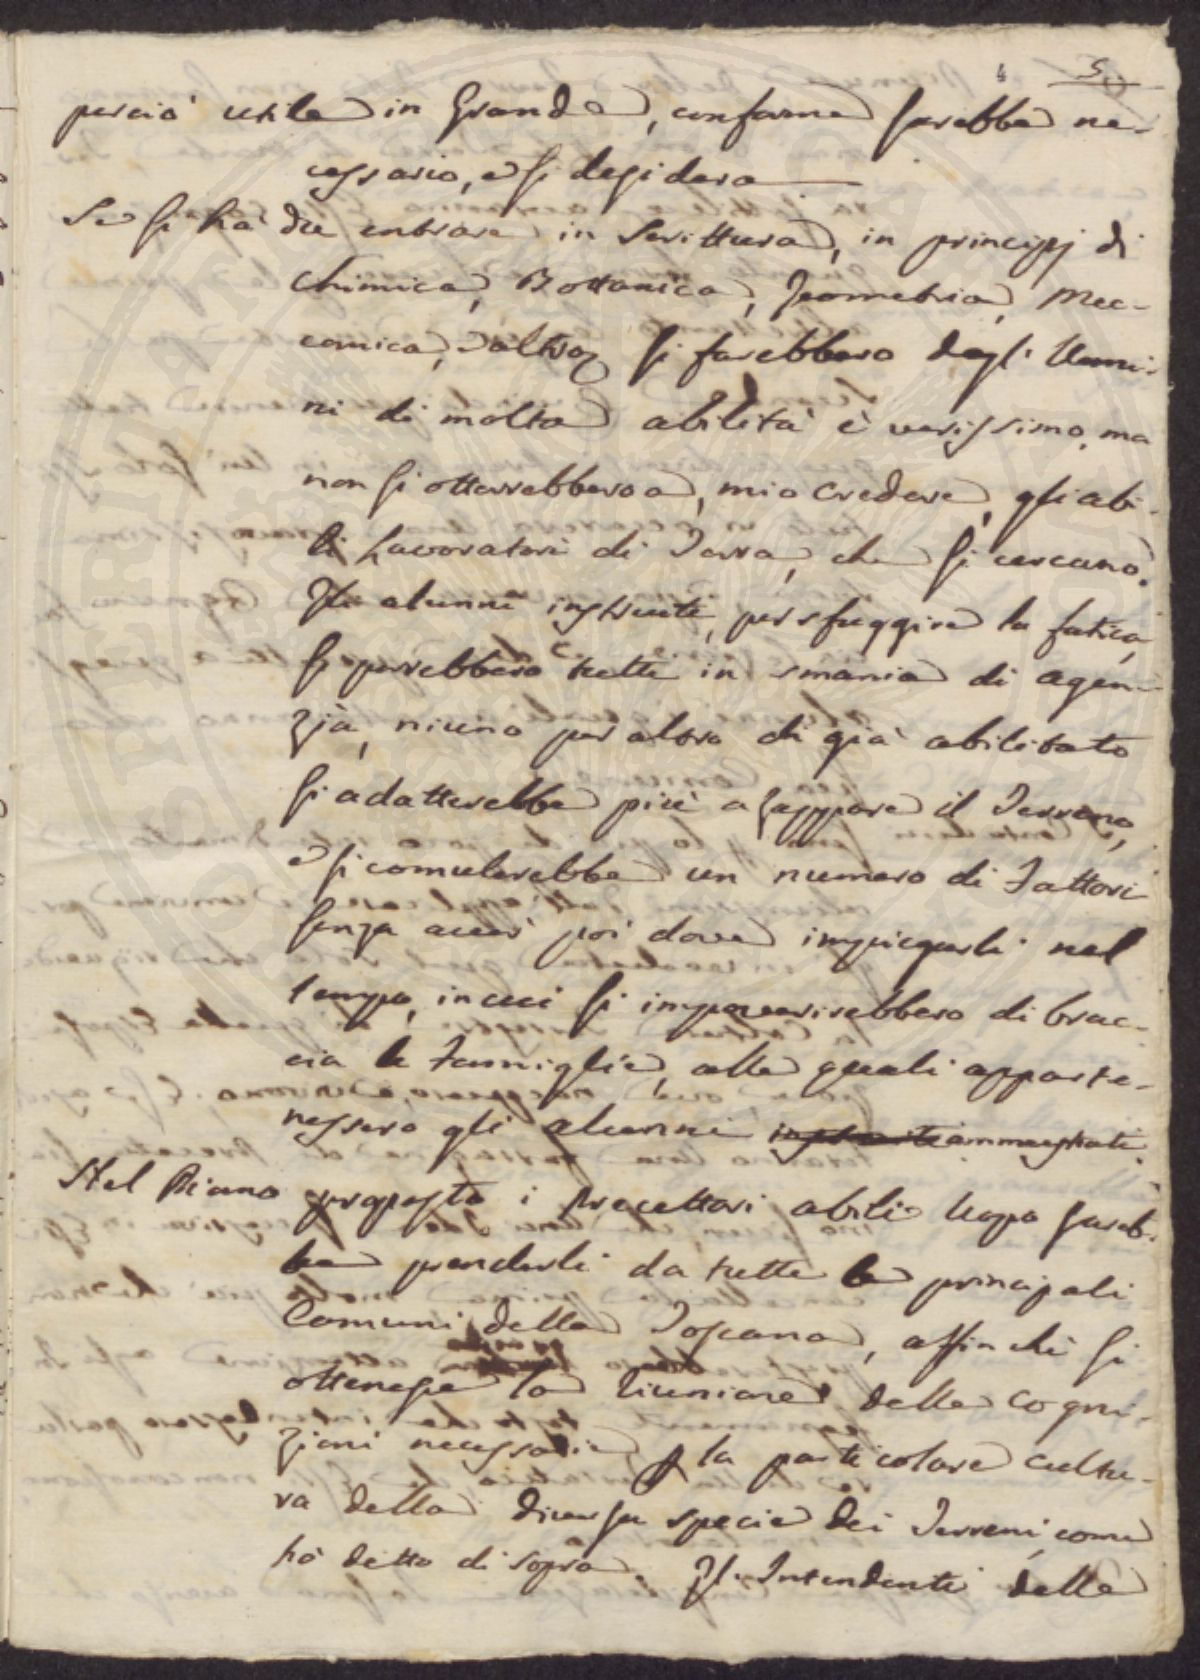 4 5
perciò utile in Grande, conforme sarebbe ne-
cessario, e si desidera
Se si ha da entrare in Scrittura, in principj di
Chimica, Bottanica, Geometria, Mec-
canica, ed altro, si farebbero degl'Uomi-
ni di molta abilità è verissimo, ma
non si otterrebbero a, mio credere, gli abi-
li Lavoratori di Terra, che si cercano.
Gli alunni instruiti, per sfuggire la fatica,
si porrebbero tutti in smania di agen-
zia, niuno per altro di già abilitato
si adatterebbe più a zappare il Terreno,
e si comulerebbe un numero di Fattori
senza aver poi dove impiegarli nel
tempo, in cui si impoverirebbero di brac-
cia le Famiglie, alle quali apparte-
nessero gli alunni ammaestrati.
Nel Piano proposto i Precettori abili uopo sareb-
be prenderli da tutte le principali
Comuni della Toscana, affinchè si
ottenesse la riunione delle cogni-
zioni necessarie p la particolare cultu-
ra della diversa specie dei Terreni, come
hò detto di sopra. Gl'Intendenti delle